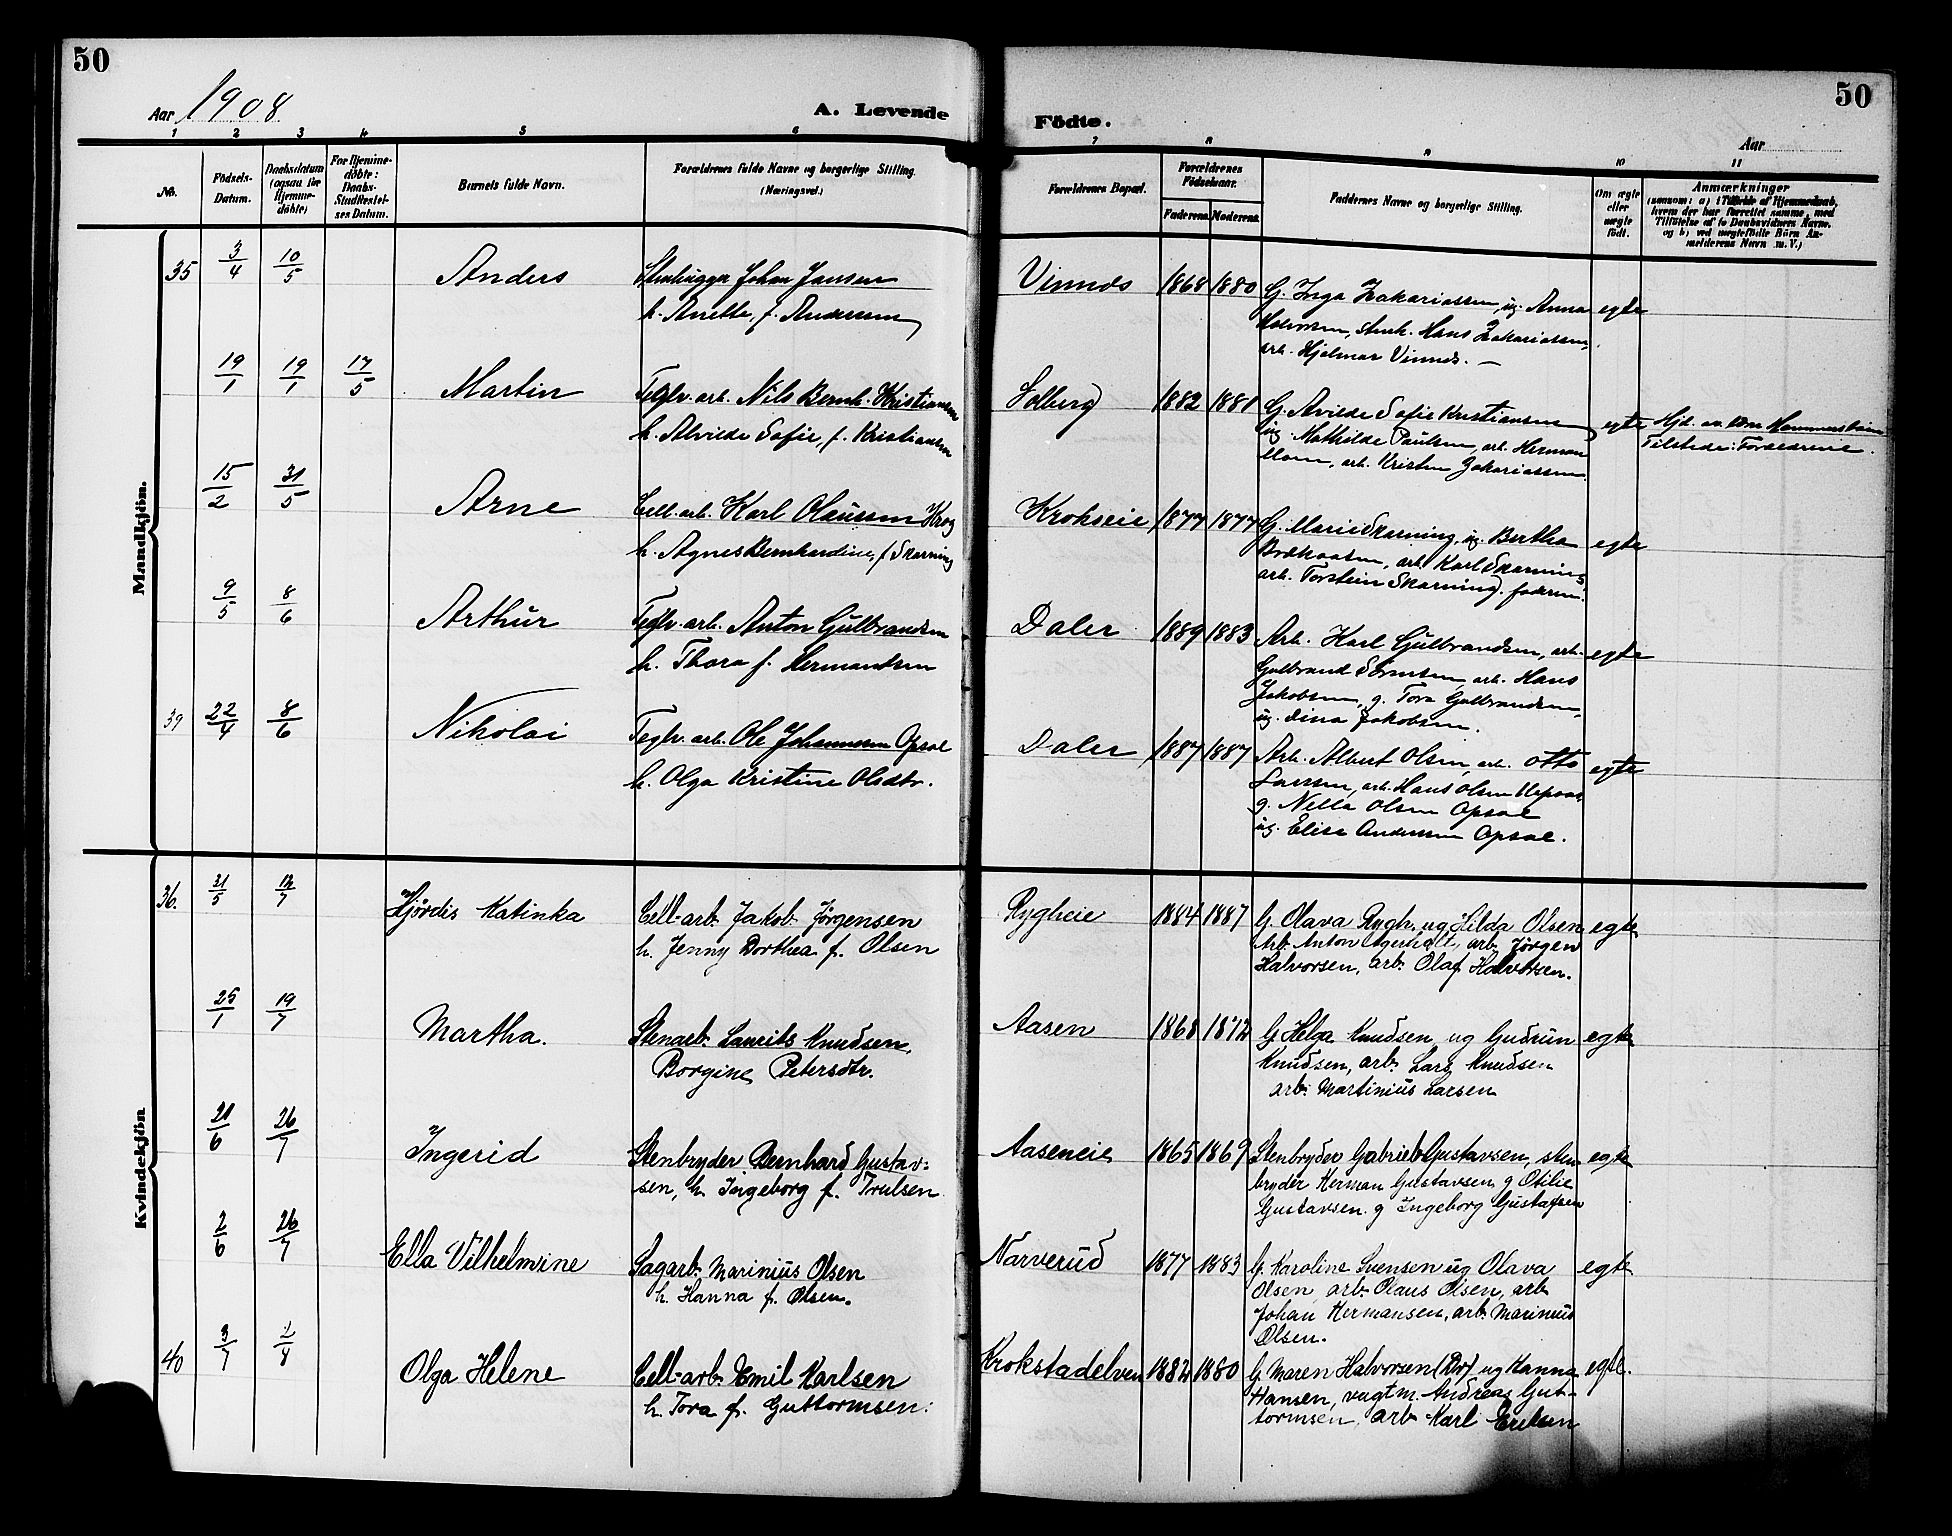 50
50
Aar 1908
A. Levende
Födte.
Aar
1 2 3 4 5 6
7 8 9 10 11
No.
Födsels-
Datum.
Daabsdatum
(ogsaa for
Hjemme-
döbte)
For Hjemme-
döbte:
Daabs-
Stadfæstel-
ses Datum.
Barnets fulde Navn.
Forældrenes fulde Navne og borgerlige Stilling.
(Næringsvei.)
Forældrenes Bopæl.
Forældrenes
Födselsaar.
Faderens
Moderens
Faddernes Navne og borgerlige Stilling.
Om ægte
eller
uægte
födt.
Anmærkninger
(saasom: a) i Tilfælde af Hjemmedaab,
hvem der har forrettet samme, med
Tilföielse af to Daabsvidners Navne.
og b) ved uægtefödte Börn An-
melderens Navn m. V.)
Mandkjön.
35 3/4 10/5 Anders
Stenhugger Johan Jansen
h. Anette, f. Andersen
Vinnds 1868 1880
G. Inga Zakariassen, ug. Anna
Halvorsen, stenh. Hans Zakariassen,
arb. Hjalmar Vinnds. —
egte
19/1 19/1 17/5 Martin
Teglv. arb. Nils Bernh. Kristiansen
h. Alvilde Sofie, f. Kristiansen
Solberg 1882 1881
G. Avilde Sofie Kristiansen
ug. Mathilde Paulsen, arb. Herman
arb. Kristen Zakariassen
egte
Hjd. av
Tilstede: Forældrene.
15/2 31/5 Arne
Cell. arb. Karl Olaussen Krog
h. Agnes Bernhardine, f Skarning
Krokseie 1877 1877
G. Marie Skarning, ug. Bertha
arb. Karl Skarning
arb. Torstein Skarning. faderen.
egte
9/5 8/6 Arthur
Teglv. arb. Anton Gulbrandsen
h. Thora f. Hermandsen
Daler 1889 1883
Arb. Karl Gulbrandsen, arb.
Gulbrand arb. Hans
Jakobsen, g. Tora Gulbrandsen,
ug. Dina Jakobsen.
egte
39 22/4 8/6 Nikolai
Teglv. arb. Ole Johannessen Opsal
h. Olga Kristine Olsdtr.
Daler 1887 1887
Arb. Albert Olsen, arb. Otto
Larssen, arb. Hans Olsen
g. Nella Olsen Opsal
ug. Elise Andersen Opsal.
egte
Kvindekjön
36. 31/5 12/7 Hjördis Katinka
Cell-arb. Jakob Jörgensen
h. Jenny Dorthea f. Olsen
Rygheie 1884 1887
G. Olava Rygh, ug Hilda Olsen
Arb. Anton arb. Jörgen
Halvorsen, arb. Olaf Halvorsen.
egte
25/1 19/7 Martha.
Stenarb. Laurits Knudsen,
Borgine Petersdtr.
Aasen 1868 1872
G Helga Knudsen ug Gudrun
Knudsen, arb. Lars Knudsen
arb. Martinius Larsen
egte
21/6 26/7 Ingerid
Stenbryder Bernhard Gustav-
sen, h. Ingeborg f. Trulsen
Aaseneie 1865 1869
Stenbryder Gabriel Gustavsen, sten-
bryder Herman Gustavsen g Otilie
Gustavsen. g Ingeborg Gustafsen
egte
2/6 26/7 Ella Vilhelmine
Sagarb. Marinius Olsen
h. Hanna f. Olsen.
Narverud 1877 1883
G. Karoline Svensen ug Olava
Olsen arb. Olaus Olsen, arb
Johan Hermansen, arb. Marinius
Olsen.
egte
40 3/7 2/8 Olga Helene
Cell-arb. Emil Karlsen
h. Tora f. Guttormsen.
Krokstadelven 1882 1880
G. Maren Halvorsen (Dr) ug Hanna
Hansen, vagtm. Andreas Gut-
tormsen, arb Karl Eriksen
egte.